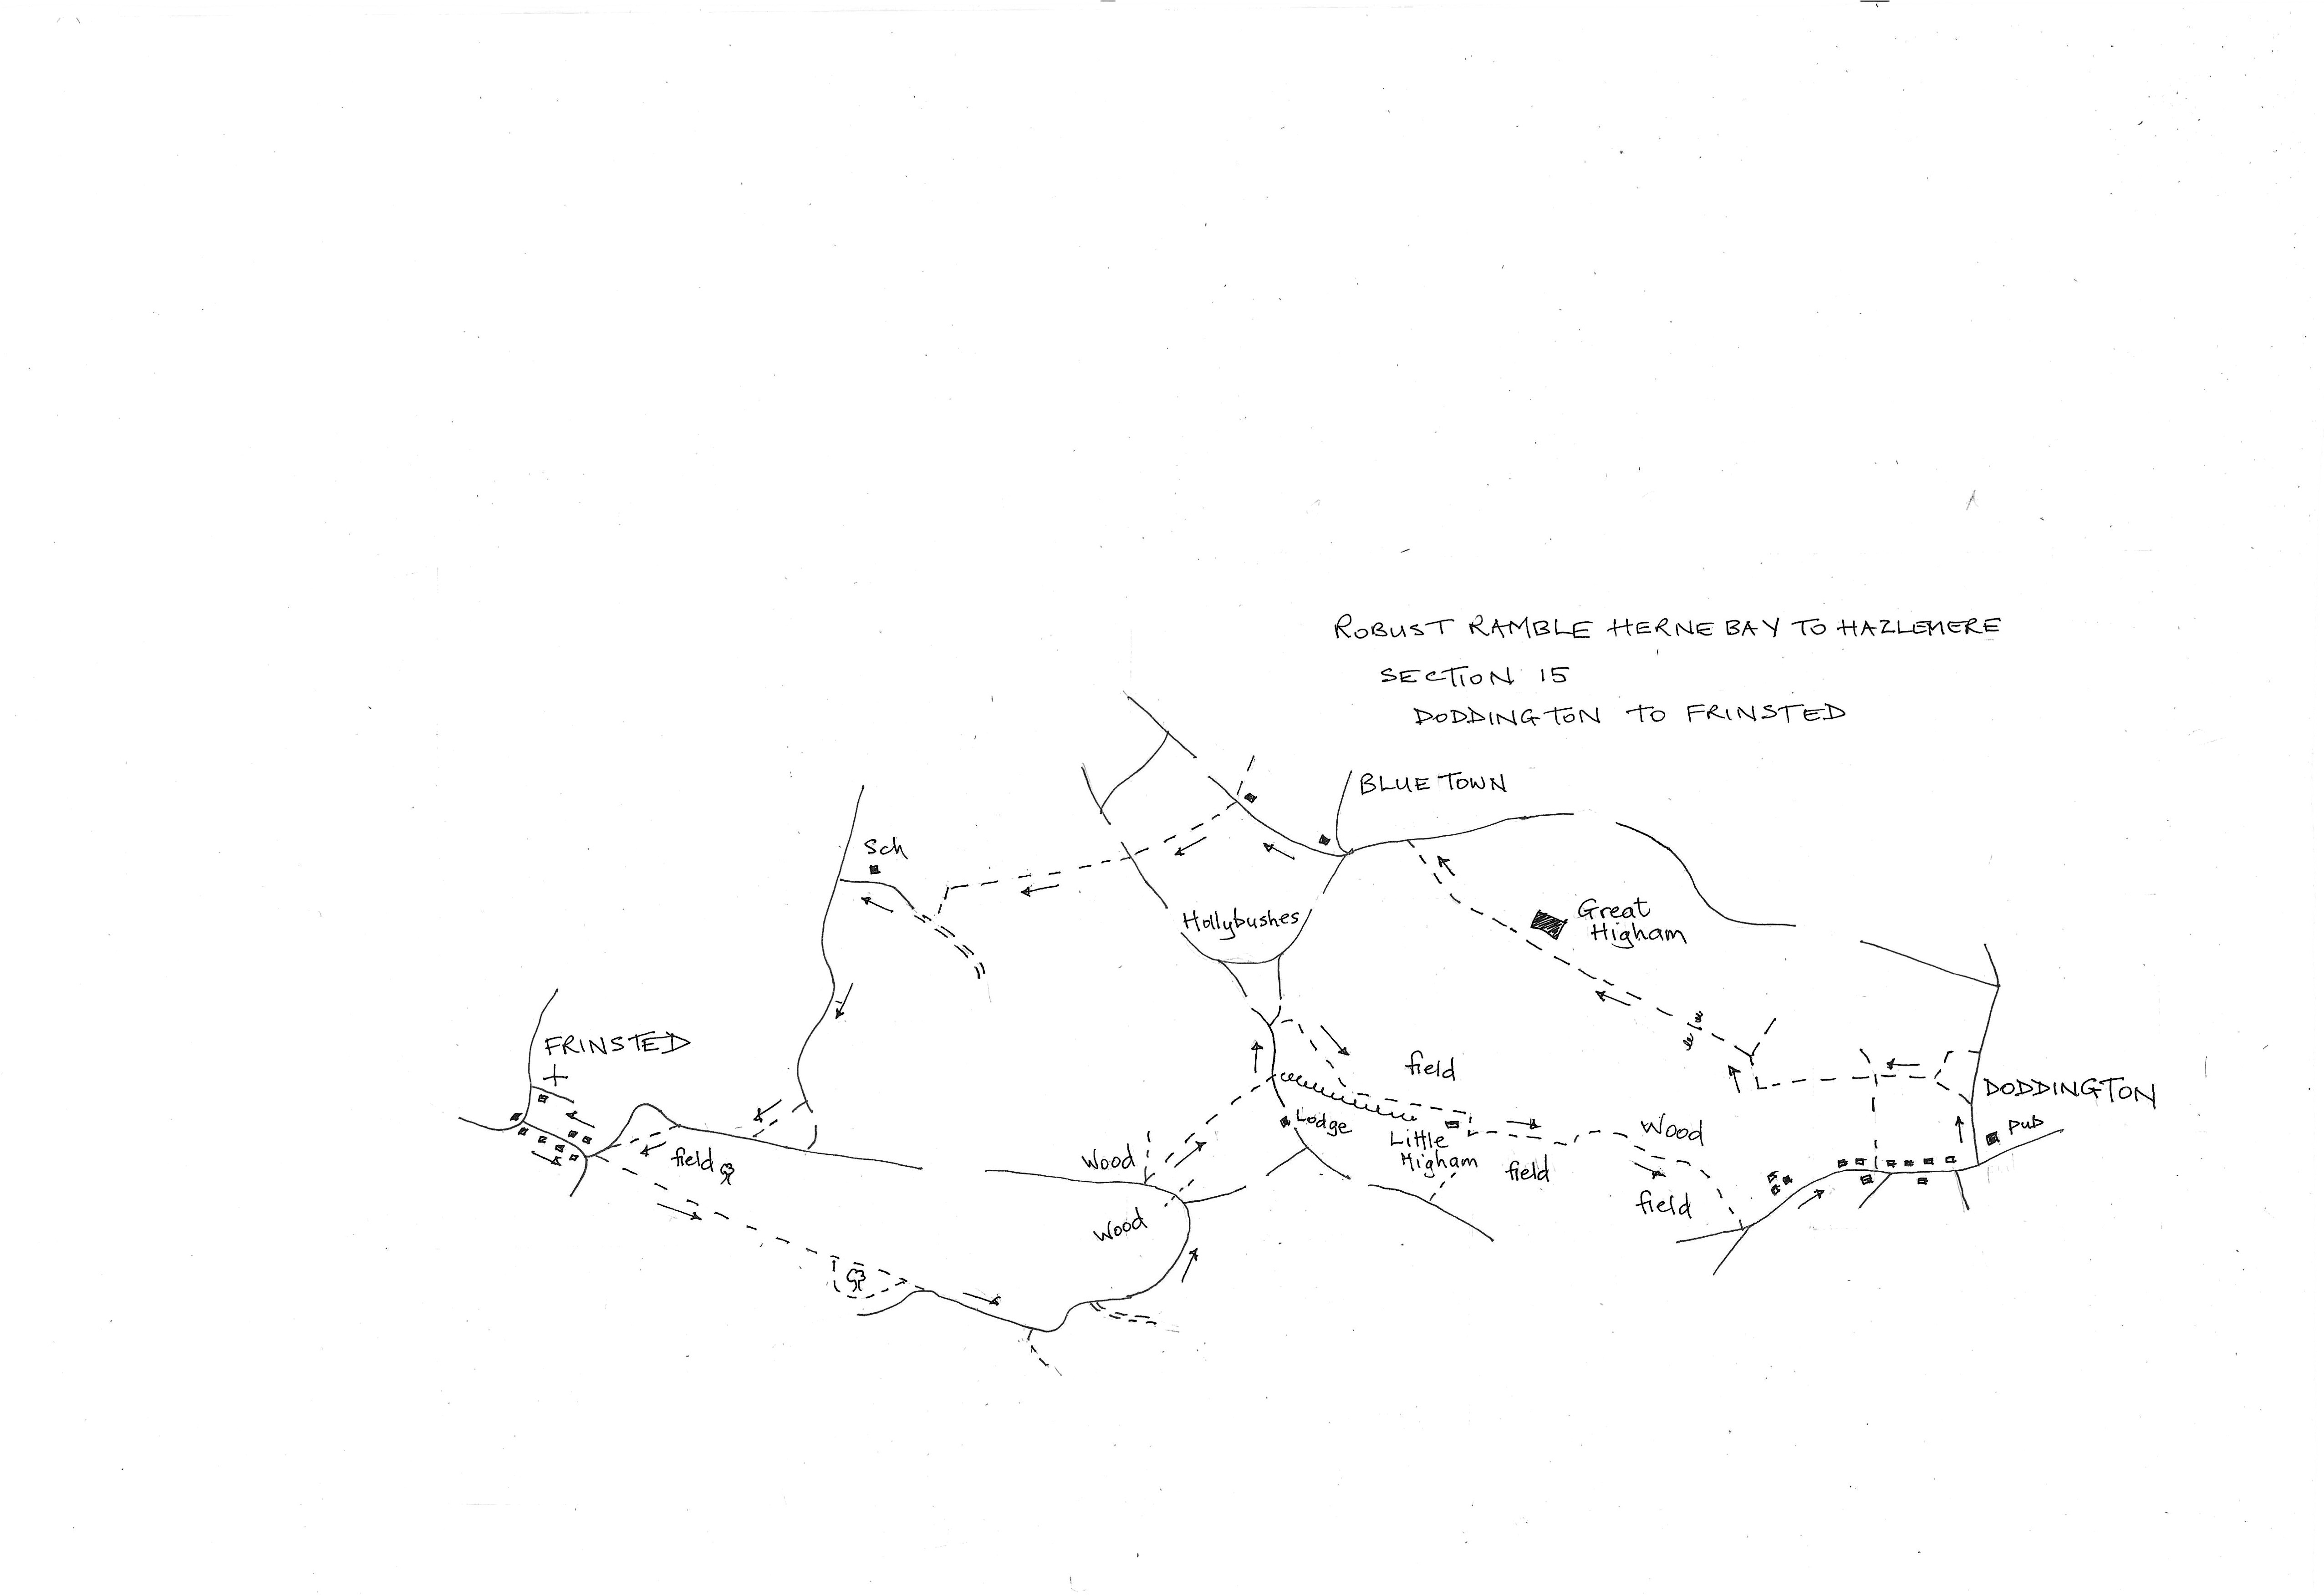 ROBUST RAMBLE HERNE BAY TO HAZLEMERE
SECTION 15
DODDINGTON TO FRINSTED
BLUE TOWN
Sch
Great
Higham
Hollybushes
FRINSTED
field
DODDINGTON
Pub
Lodge
Little
Higham
Wood
Wood
field
field
field
Wood